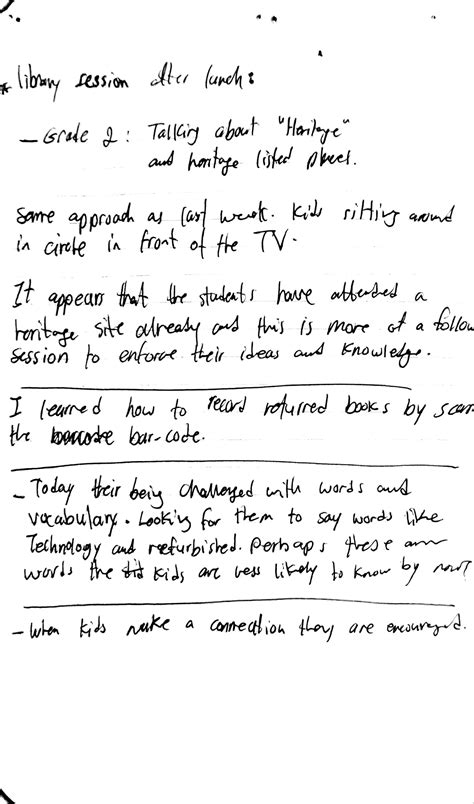 * library session after lunch:
– Grade 2: Talking about "Heritage"
and heritage listed places.
Same approach as last week. Kids sitting around
in circle in front of the TV.
It appears that the students have attended a
heritage site already and this is more of a follow
session to enforce their ideas and knowledge.
I learned how to record returned books by scan
the barcode bar-code.
– Today their being challenged with words and
vocabulary. Looking for them to say words like
Technology and refurbished. Perhaps these are
words the did kids are less likely to know by now?
– When kids make a connection they are encouraged.